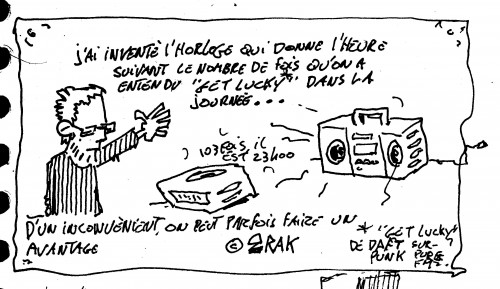 J'AI INVENTÉ l'HORLOGE QUI DONNE l'HEURE
SUIVANT LE NOMBRE DE FOIS QU'ON A
ENTENDU "GET LUCKY"* DANS LA
JOURNÉE...
103 FOIS, il
EST 23H00
D'UN INCONVÉNIENT, ON PEUT PARFOIS FAIRE UN
AVANTAGE
© ZRAK
* "GET LUCKY"
DE DAFT
PUNK
SUR-
PURE